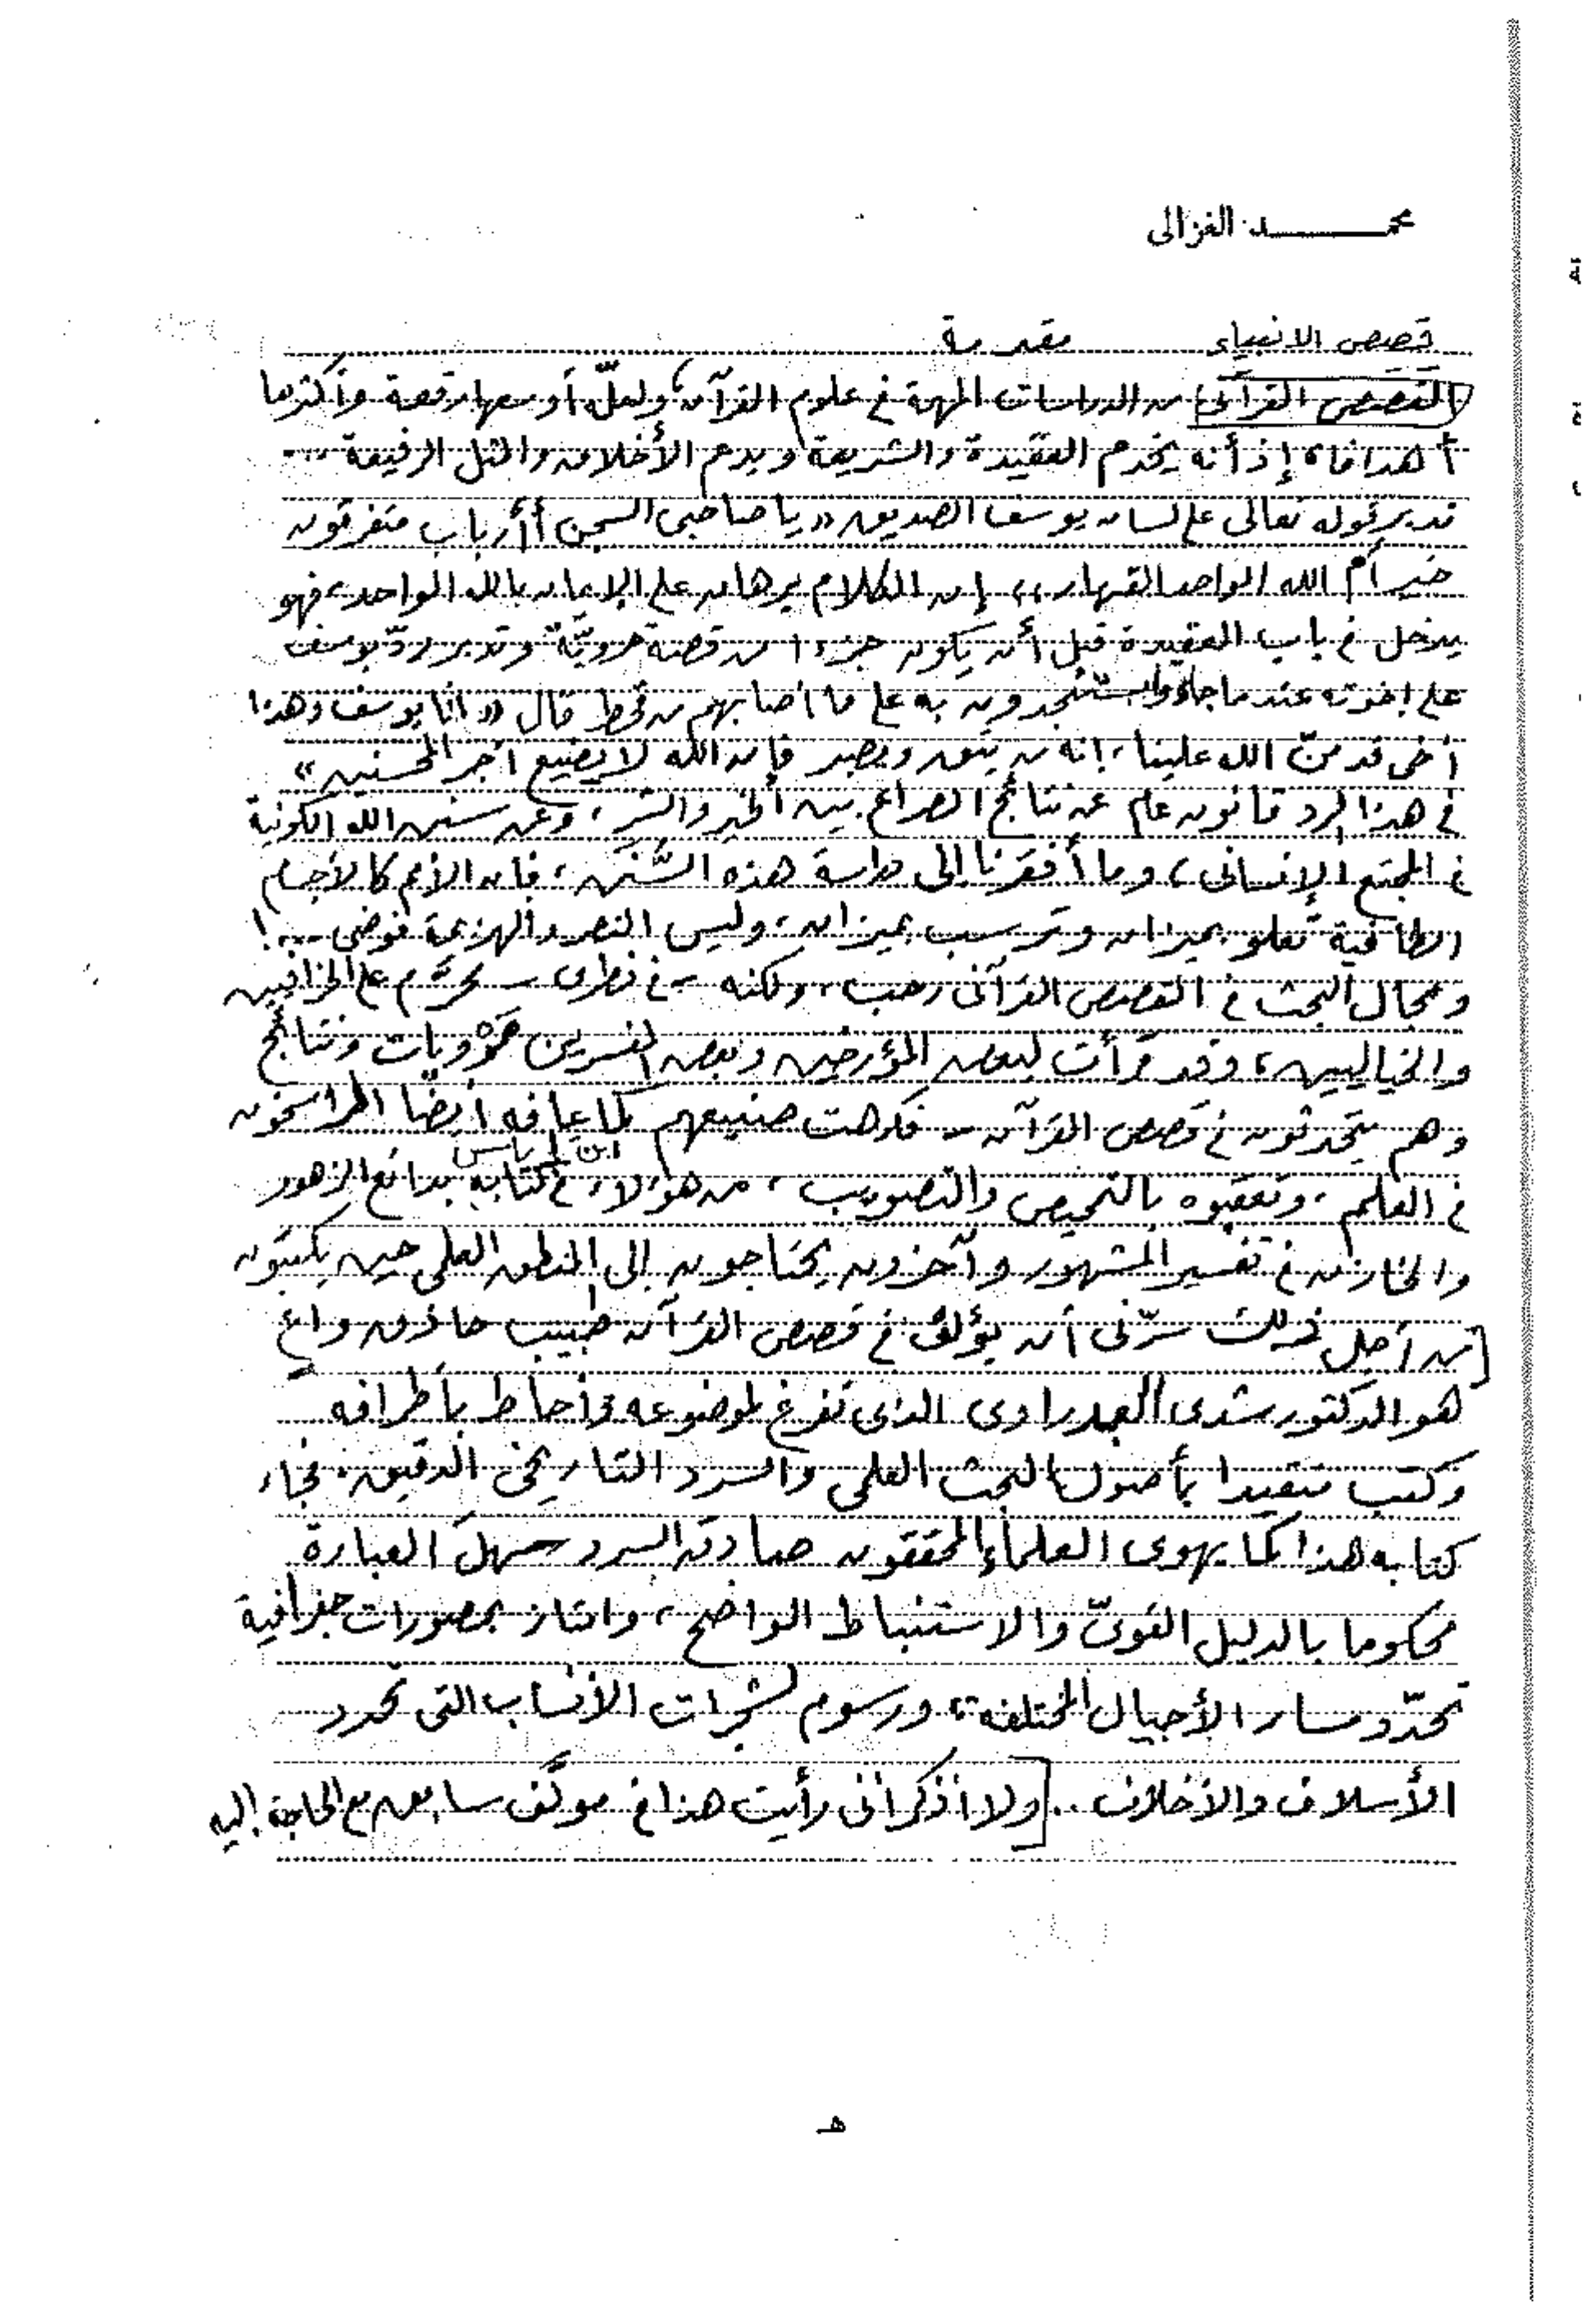 محمد الغزالى
قصص الانبياء مقدمة
القصص القرآنى من الدراسات المهمة فى علوم القرآن، ولعلّه أوسعها رقعة وأكثرها
أهدافا، إذ أنه يخدم العقيدة والشريعة ويدعم الأخلاق والمثل الرفيعة ..
تدبر قوله تعالى على لسان يوسف الصديق «يا صاحبى السجن أأرباب متفرقون
خير أم الله الواحد القهار» إن الكلام برهان على الإيمان بالله الواحد، فهو
يدخل فى باب العقيدة قبل أن يكون جزءا من قصة مرويّة وتدبر ردّ يوسف
على إخوته عندما جاءوا يستنجدون به على ما أصابهم من قحط قال «أنا يوسف وهذا
أخى قد منّ الله علينا، إنه من يتق ويصبر فإن الله لا يضيع أجر المحسنين»
فى هذا الرد قانون عام عن نتائج الصراع بين الخير والشر، وعن سنن الله الكونية
فى المجتمع الإنسانى، وما أفقرنا إلى دراسة هذه السُّنَن، فإن الأمم كالأجسام
الطافية تعلو بميزان وترسب بميزان، وليس النصر والهزيمة فوضى ..!
ومجال البحث فى القصص القرآنى رحب، ولكنه - فى نظرى - محرّم على الخرافيين
والخياليين، وقد قرأت لبعض المؤرخين وبعض المفسرين مرويات ونتائج
وهم يتحدثون فى قصص القرآن - فكرهت صنيعهم كما عافه أيضا الراسخون
فى العلم، وتعقبوه بالتمحيص والتصويب، من هؤلاء ابن إياس فى كتابه بدائع الزهور
والخازن فى تفسير المشهور وآخرون يحتاجون إلى المنطق العلمى حين يكتبون
[من أجل ذلك سرّنى أن يؤلف فى قصص القرآن طبيب حاذق واع
هو الدكتور رشدى البدراوى الذى تفرغ لموضوعه وأحاط بأطرافه
وكتب متقيدا بأصول البحث العلمى والسرد التاريخى الدقيق. فجاء
كتابه هذا كما يهوى العلماء المحققون صادق السرد سهل العبارة
محكوما بالدليل القوىّ والاستنباط الواضح، وامتاز بمصورات جغرافية
تحدّد مسار الأجيال المختلفة، ورسوم لشجرات الأنساب التى تحدد
الأسلاف والأخلاف ..] ولا أذكر أننى رأيت هذا فى مؤلَّف سابق مع الحاجة إليه
هـ